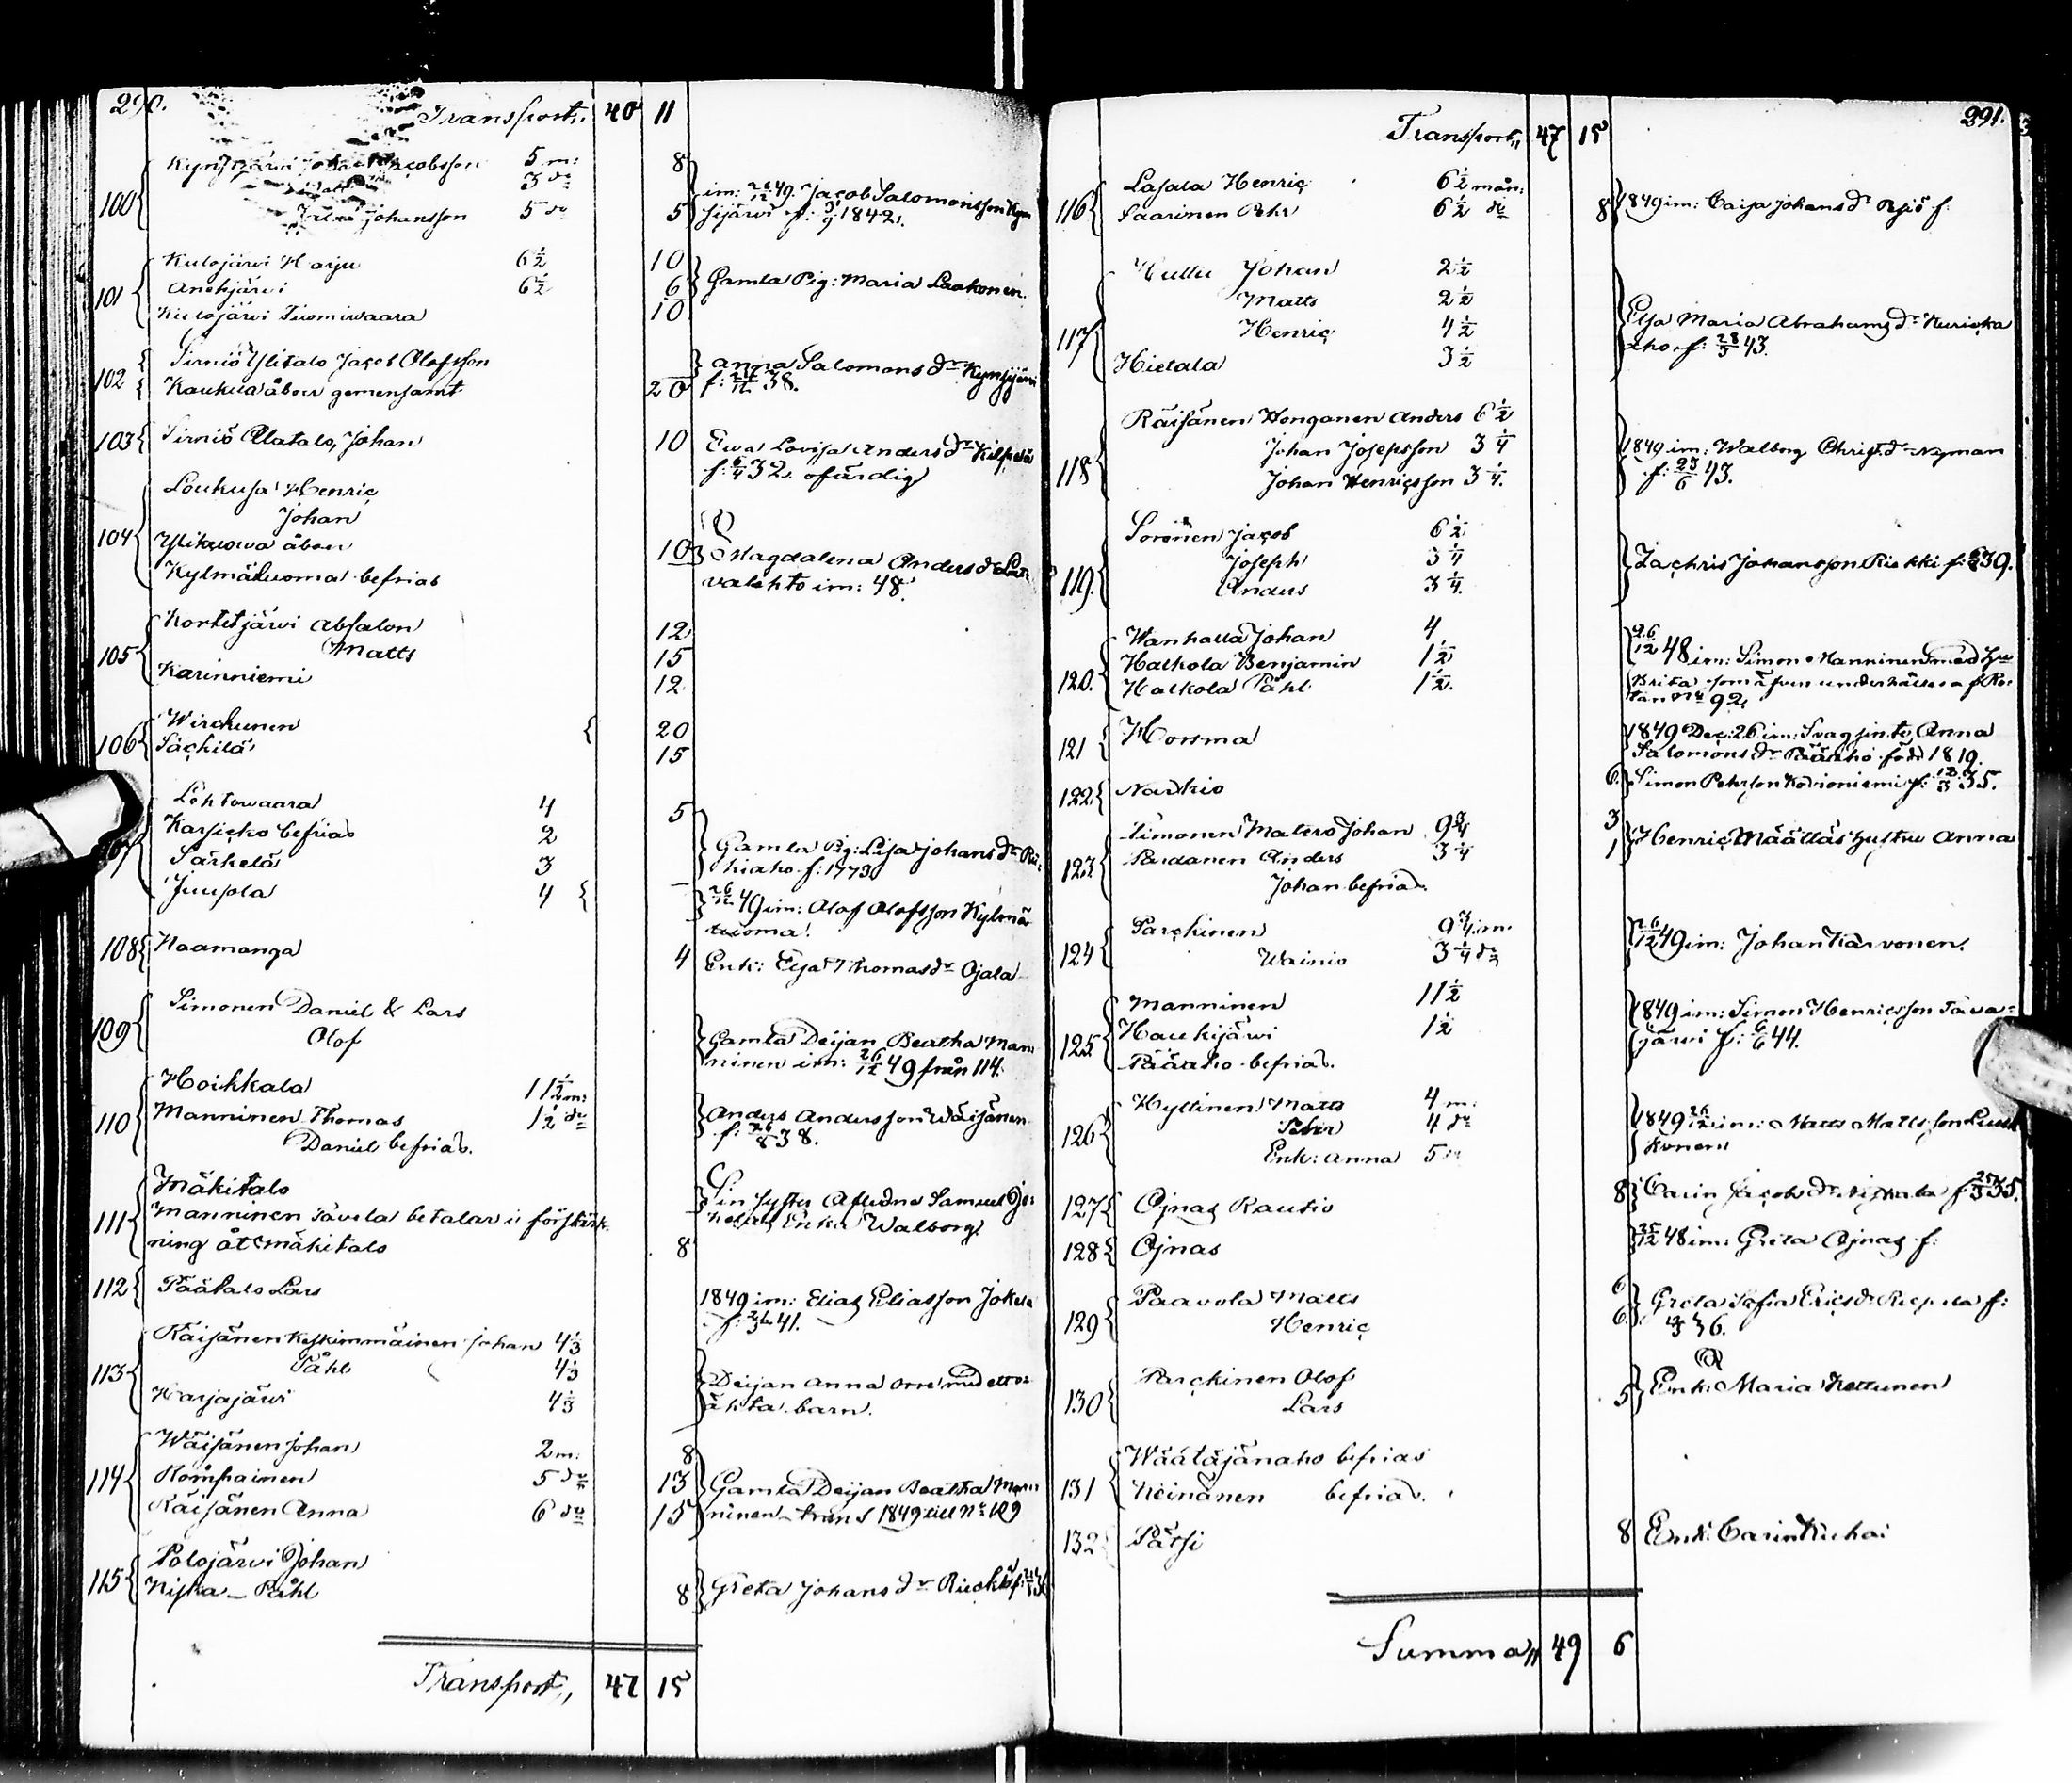 290.
Transport,, 40 11
100 Kynsijärvi Johan Jacobsson 5 m: 8
3 do
Johansson 5 do 5
im: 26/12 49. Jacob Salomonsson Kyn
sijärvi f: 1842.
101 Kulojärvi Harju 6½ 10
6½ 6
Kulojärvi Tuomiwaara 10
Gamla Pig: Maria Laakonen.
102 Sirniö Ylitalo Jacob Olofsson
Kaukua åboer gemensamt 20
Anna Salomons dr Kynsijärvi
f: 38.
103 Sirniö Alatalo, Johan 10
Ewa Lovisa Anders dr Kilpelä
f: 32. ofärdig
104 Loukusa Henric
Johan
åboer 10
Kylmäluoma befrias
Magdalena Anders dr Lat
valehto im: 48.
105 Kortetjärvi Absalon 12
Matts 15
Karinniemi 12
106 Wirckunen 20
Säckilä 15
Lohtowaara 4 5
Karsicko befrias 2
Särkelä 3
Juupla 4
Gamla Pig: Lisa Johans dr
kiaho f: 1773
26/12 49 im: Olof Olofsson Kylmä
luoma.
108 Naamanga 4
Enk: Elsa Thomas dr Ojala
109 Simonen Daniel & Lars
Olof
Gamla Deijan Beatha Man
ninen im: 26/12 49 från 114.
110 Hoikkala 11½ m:
Manninen Thomas 1½ do
Daniel befrias.
Anders Andersson Wäisänen
f: 38.
111 Mäkitalo
Manninen Tävela betalar i förstärk
ning åt Mäkitalo 8
Sin syster Aflidne Samuel Jo
Enka Walborg
112 Päätalo Lars
1849 im: Elias Eliasson Jokela
f: 41.
113 Räisänen Keskimmäinen Johan 4⅓
Påhl 4⅓
Harjajärvi 4⅓
Deijan Anna Orre med ett o
äkta barn.
114 Wäisänen Johan 2 m: 8
Rompainen 5 do 13
Räisänen Anna 6 do 15
Gamla Deijan Beatha Man
ninen trans 1849 till No 109
115 Polojärvi Johan
Niska - Påhl 8
Greta Johans dr
Transport,, 47 15
291.
Transport,, 47 15
116 Lasala Henric 6½ mån:
Saarinen Pehr 6½ do 8
1849 im: Caisa Johans dr f:
117 Hullu Johan 2½
Matts 2½
Henric 4½
Hietala 3½
Elsa Maria Abrahams dr Kuricka
aho f: 28/5 43.
118 Räisänen Honganen Anders 6½
Johan Josepsson 3¼
Johan Henricsson 3¼.
1849 im: Walborg Christ. dr Nyman
f: 23/6 43.
119. Soronen Jacob 6½
Joseph 3¼
Anders 3¼.
Zachris Johansson Riekki f: 39.
120. Wanhala Johan 4
Halkola Benjamin 1½
Halkola Påhl 1½.
26/12 48 im: Simon Manninen med Hu
Brita som äfven underhålles af Ro
tan No 92.
121 Horsma
1849 Dec: 26 im: Svagsinta Anna
Salomons dr Pääaho född 1819.
122 Narkio 6.
Simon Pehrsson Kovioniemi f: 35.
123 Simonen Maters Johan 9¾ 3
Anders 3¼ 1
Johan befrias.
Henric Määttäs hustru Anna
124 Parckinen 9¾ m.
Wainio 3¼ do
26/12 49 im: Johan Karvonen.
125 Manninen 11½
Haukijärvi 1½
Pääaho befrias.
1849 im: Simon Henricsson Tava
järvi f: 6/6 44.
126 Hyttinen Matts 4 m:
Pehr 4 do
Enk: Anna 5 do
1849 26/12 im: Matts Mattsson
konen
127 Ojnas Rautio 8
Carin Jacobs dr f: 35.
128 Ojnas
25/12 48 im: Greta Ojnas f:
129 Paavola Matts 6
Henric 6
Greta Sofia Erics dr f:
36.
130 Parckinen Olof
Lars 5
Enk: Maria Kettunen
131 Wäätäjänaho befrias
Heinänen befrias.
132 Pätsi 8
Enk: Carin
Summa,, 49 6